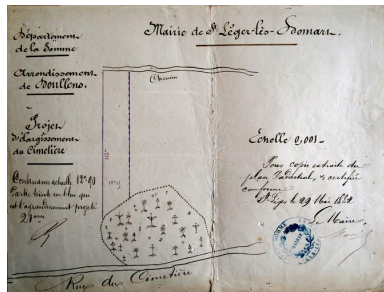 Département
de la Somme
Arrondissement
de Doullens
Projet
d'élargissement
du Cimetière
Contenance actuelle 12a 40
Partie teinte en bleu qui
est l'agrandissement projeté
2 ares
Mairie de St Léger-lès-Domart.
Chemin
Echelle 0,001.
Pour copie extraite du
plan Cadastral, & certifiée
conforme
St Léger le 29 Mai 1884
Le Maire,
Rue du Cimetière